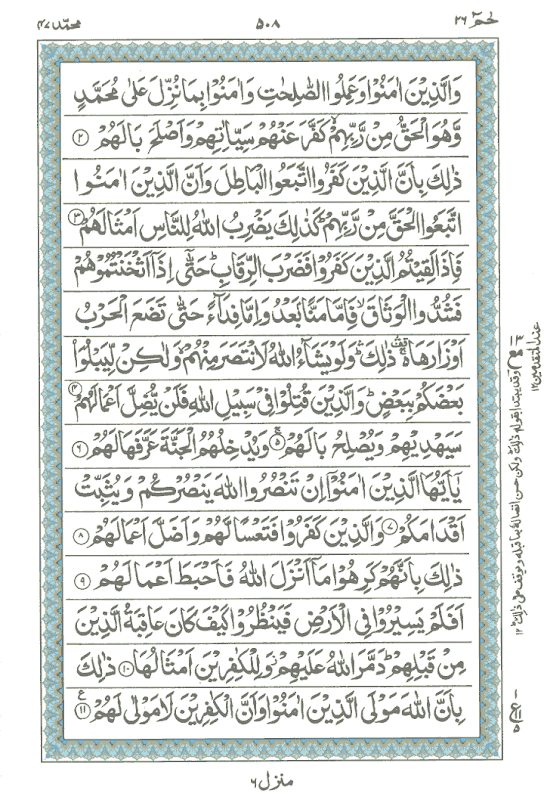 حٰمٓ ٢٦
٥٠٨
محمد ٤٧
وَالَّذِيْنَ اٰمَنُوْا وَعَمِلُوا الصّٰلِحٰتِ وَاٰمَنُوْا بِمَا نُزِّلَ عَلٰى مُحَمَّدٍ
وَّهُوَ الْحَقُّ مِنْ رَّبِّهِمْ ۙ كَفَّرَ عَنْهُمْ سَيِّاٰتِهِمْ وَاَصْلَحَ بَالَهُمْ ﴿٢﴾
ذٰلِكَ بِاَنَّ الَّذِيْنَ كَفَرُوا اتَّبَعُوا الْبَاطِلَ وَاَنَّ الَّذِيْنَ اٰمَنُوا
اتَّبَعُوا الْحَقَّ مِنْ رَّبِّهِمْ ؕ كَذٰلِكَ يَضْرِبُ اللّٰهُ لِلنَّاسِ اَمْثَالَهُمْ ﴿٣﴾
فَاِذَا لَقِيْتُمُ الَّذِيْنَ كَفَرُوْا فَضَرْبَ الرِّقَابِ ؕ حَتّٰٓى اِذَاۤ اَثْخَنْتُمُوْهُمْ
فَشُدُّوا الْوَثَاقَ ۙ فَاِمَّا مَنًّۢا بَعْدُ وَاِمَّا فِدَآءً حَتّٰى تَضَعَ الْحَرْبُ
اَوْزَارَهَا ۛ ذٰلِكَ ؕ وَلَوْ يَشَآءُ اللّٰهُ لَانْتَصَرَ مِنْهُمْ وَلٰكِنْ لِّيَبْلُوَا۟
بَعْضَكُمْ بِبَعْضٍ ؕ وَالَّذِيْنَ قُتِلُوْا فِيْ سَبِيْلِ اللّٰهِ فَلَنْ يُّضِلَّ اَعْمَالَهُمْ ﴿٤﴾
سَيَهْدِيْهِمْ وَيُصْلِحُ بَالَهُمْ ﴿٥﴾ وَيُدْخِلُهُمُ الْجَنَّةَ عَرَّفَهَا لَهُمْ ﴿٦﴾
يٰۤاَيُّهَا الَّذِيْنَ اٰمَنُوْۤا اِنْ تَنْصُرُوا اللّٰهَ يَنْصُرْكُمْ وَيُثَبِّتْ
اَقْدَامَكُمْ ﴿٧﴾ وَالَّذِيْنَ كَفَرُوْا فَتَعْسًا لَّهُمْ وَاَضَلَّ اَعْمَالَهُمْ ﴿٨﴾
ذٰلِكَ بِاَنَّهُمْ كَرِهُوْا مَاۤ اَنْزَلَ اللّٰهُ فَاَحْبَطَ اَعْمَالَهُمْ ﴿٩﴾
اَفَلَمْ يَسِيْرُوْا فِى الْاَرْضِ فَيَنْظُرُوْا كَيْفَ كَانَ عَاقِبَةُ الَّذِيْنَ
مِنْ قَبْلِهِمْ ؕ دَمَّرَ اللّٰهُ عَلَيْهِمْ ۫ وَلِلْكٰفِرِيْنَ اَمْثَالُهَا ﴿١٠﴾ ذٰلِكَ
بِاَنَّ اللّٰهَ مَوْلَى الَّذِيْنَ اٰمَنُوْا وَاَنَّ الْكٰفِرِيْنَ لَا مَوْلٰى لَهُمْ ﴿١١﴾
منزل ٦